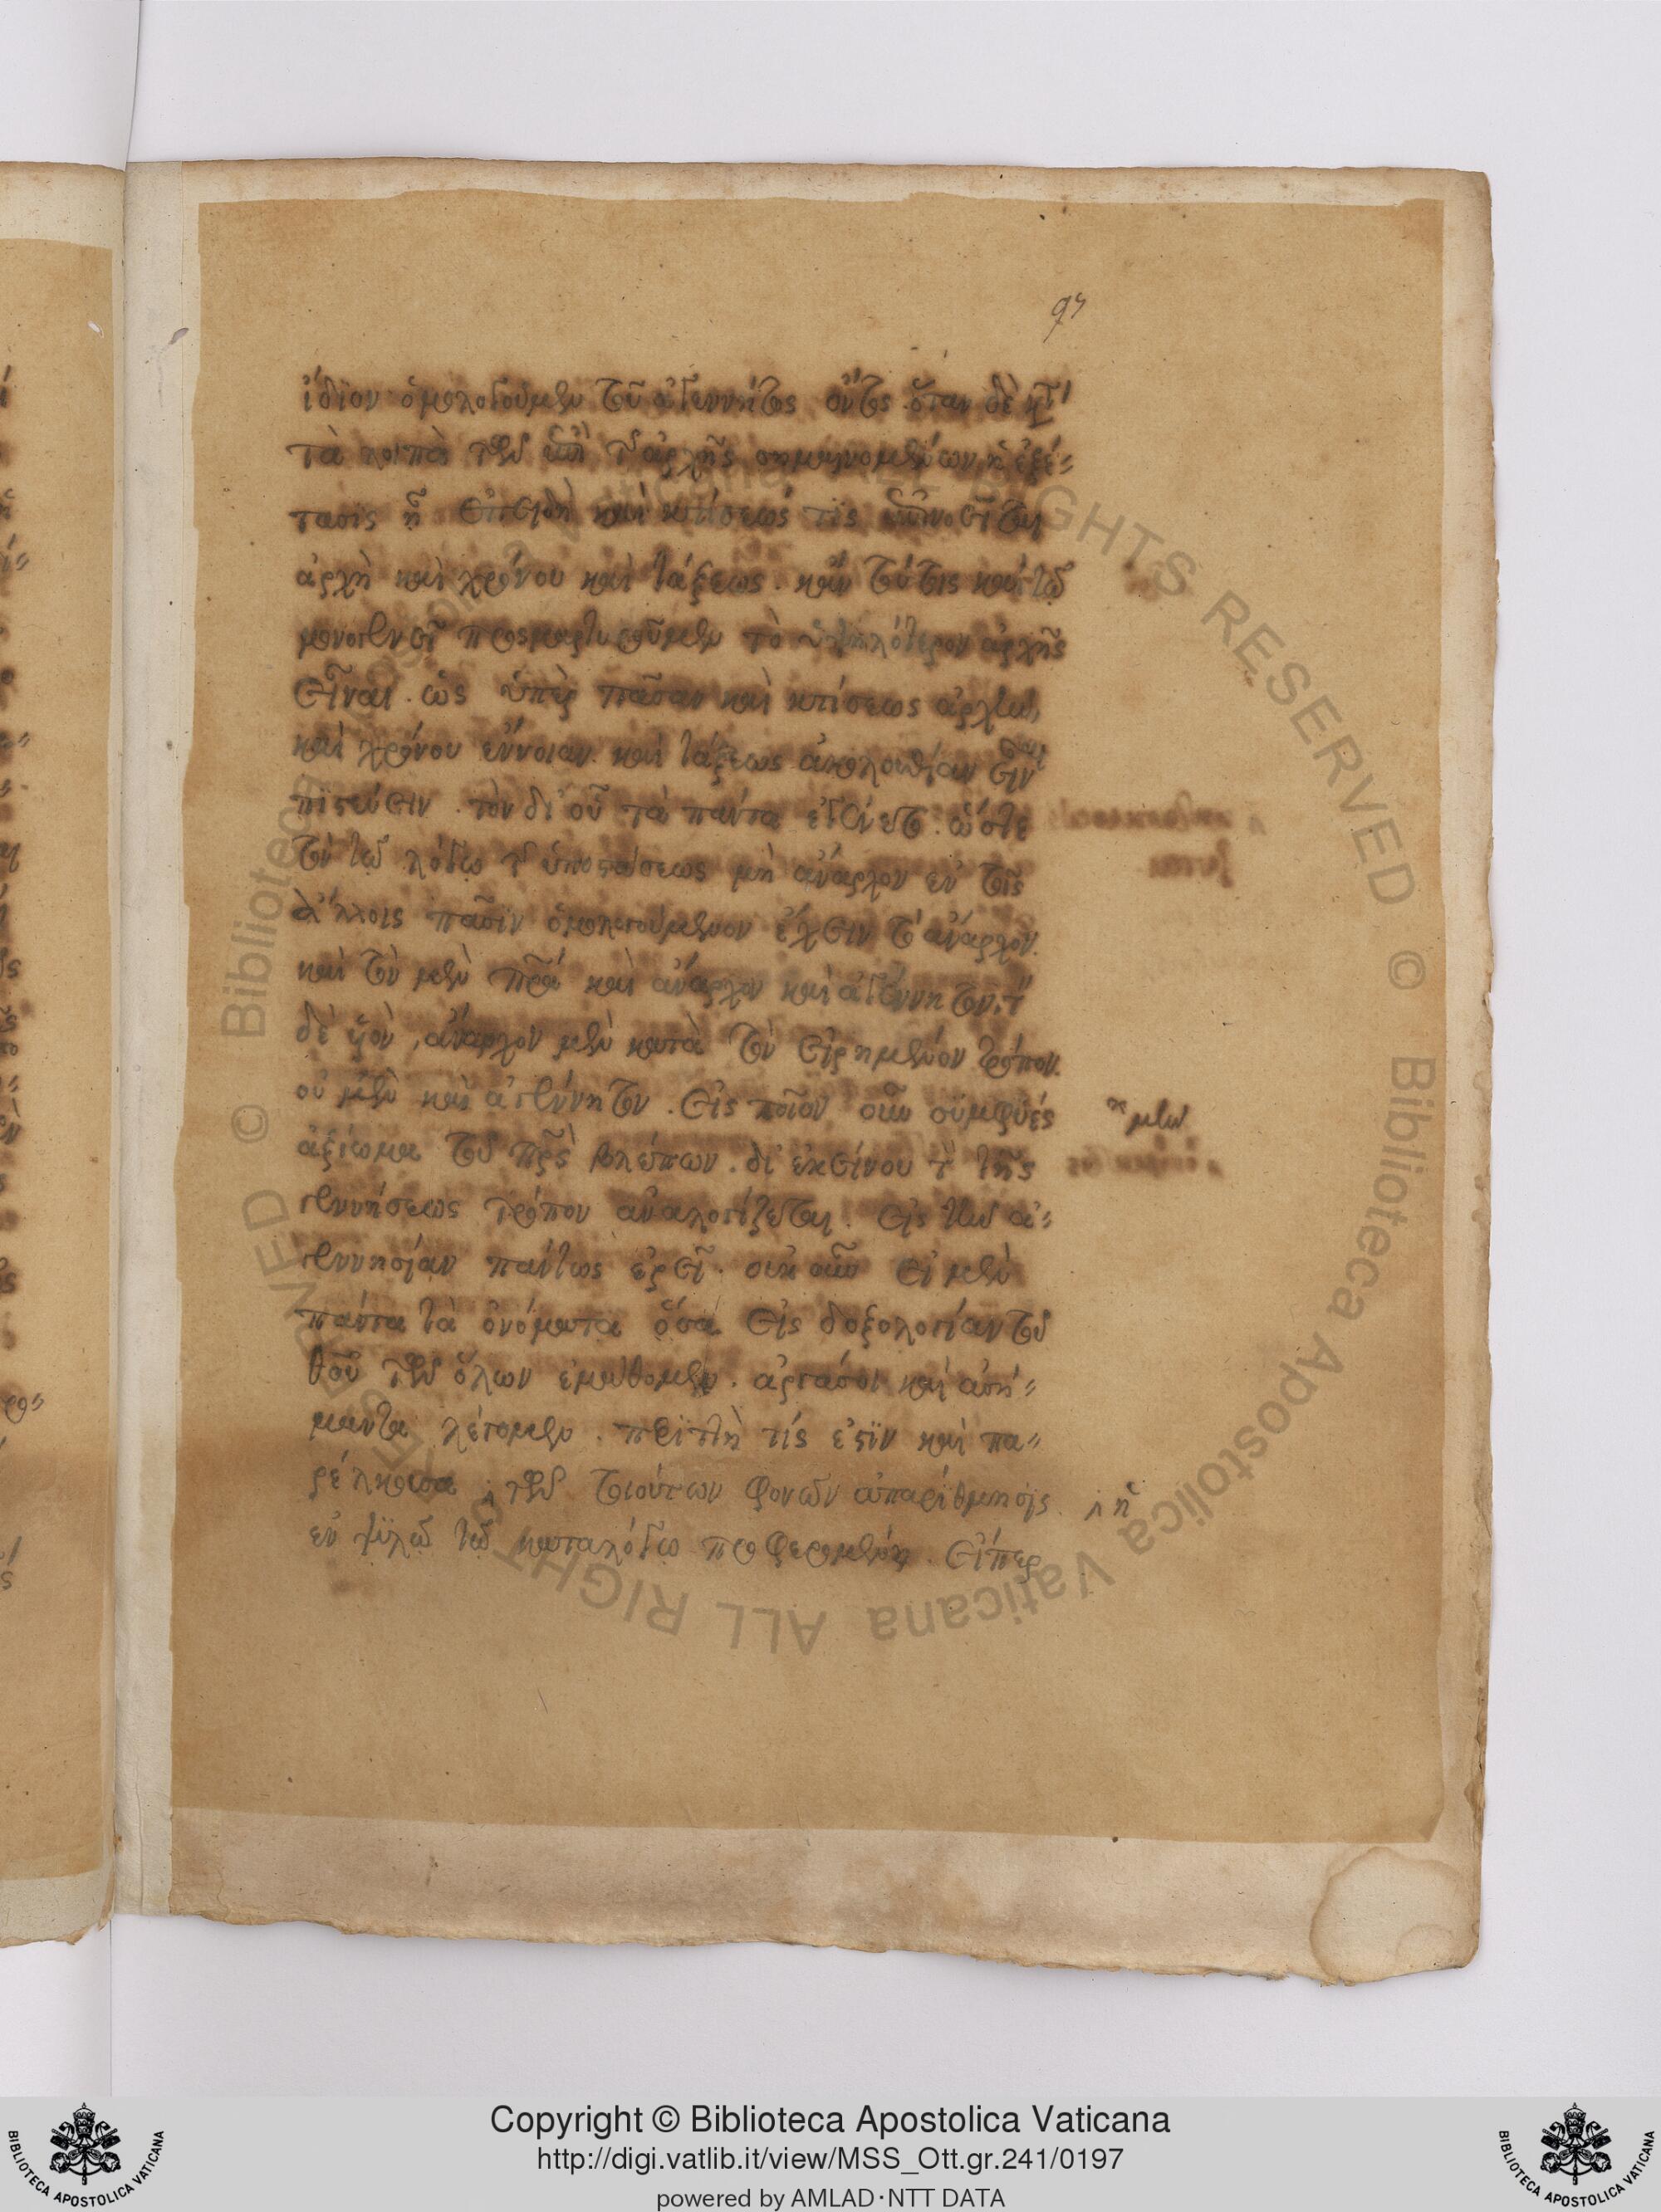 97
ἴδιον ὁμολογοῦμεν τοῦ ἀγεννήτως ὄντος. ὅταν δὲ κτ
τὰ λοιπὰ τῶν ἐπὶ τ ἀρχῆς σημαινομένων ἡ ἐξέ=
τασις ᾖ ἐπειδὴ καὶ κτίσεώς τις ἐπινοεῖται
ἀρχὴ καὶ χρόνου καὶ τάξεως. κἂν τούτοις καὶ τῷ
μονογενεῖ προσμαρτυροῦμεν τὸ ὑψηλότερον ἀρχῆς
εἶναι. ὡς ὑπὲρ πᾶσαν καὶ κτίσεως ἀρχὴν,
καὶ χρόνου ἔννοιαν. καὶ τάξεως ἀκολουθίαν εἶναι
πιστεύειν. τὸν δι' οὗ τὰ πάντα ἐγένετο. ὥστε
τὸν τῷ λόγῳ τ ὑποστάσεως μὴ ἄναρχον ἐν τοῖς
ἄλλοις πᾶσιν ὁμολογούμενον ἔχειν τὸ ἄναρχον.
καὶ τὸν μὲν πρα καὶ ἄναρχον καὶ ἀγέννητον. τ
δὲ υἱὸν, ἄναρχον μὲν κατὰ τὸν εἰρημένον τρόπον.
οὐ μὲν καὶ ἀγέννητον. εἰς ποῖον οὖν συμφυές
μὴν
ἀξίωμα τοῦ πρς βλέπων. δι' ἐκείνου τ τῆς
γεννήσεως τρόπον ἀναλογίζεται. εἰς τὴν ἀ=
γεννησίαν πάντως ἐρεῖ. οὐκ οὖν εἰ μὲν
πάντα τὰ ὀνόματα ὅσα εἰς δοξολογίαν τοῦ
θεοῦ τῶν ὅλων ἐμάθομεν. ἀργά καὶ ἀση=
μαντα λέγομεν. περιττὴ τίς ἐστὶν καὶ πα=
ρέλκουσα, τῶν τοιούτων φονῶν ἀπαρίθμησις
ἡ
ἐν ψιλῷ τῷ καταλόγῳ προφερομένη. εἴπερ
Copyright © Biblioteca Apostolica Vaticana
http://digi.vatlib.it/view/MSS_Ott.gr.241/0197
powered by AMLAD·NTT DATA
BIBLIOTECA APOSTOLICA VATICANA
BIBLIOTECA APOSTOLICA VATICANA
© Biblioteca Apostolica Vaticana ALL RIGHTS RESERVED © Biblioteca Apostolica Vaticana ALL RIGHTS RESERVED